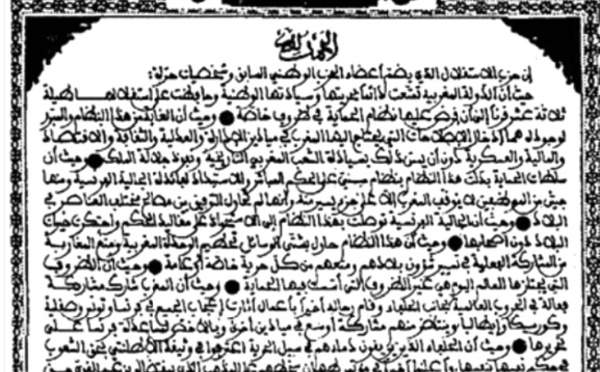 الحمد لله
إن حزب الاستقلال الذي يضم أعضاء الحزب الوطني السابق وشخصيات حرة:
حيث أن الدولة المغربية تمتعت دائما بحريتها وسيادتها الوطنية وحافظت على استقلالها طيلة
ثلاثة عشر قرنا إلى أن فرض عليها نظام الحماية في ظروف خاصة ● وحيث أن الغاية من هذا النظام والمبرر
لوجوده هما إدخال الإصلاحات التي يحتاج إليها المغرب في ميادين الإدارة والعدلية والثقافة والاقتصاد
والمالية والعسكرية دون أن يمس ذلك بسيادة الشعب المغربي التاريخية ونفوذ جلالة الملك ● وحيث أن
سلطات الحماية بدلت هذا النظام بنظام مبني على الحكم المباشر والاستبداد لفائدة الجالية الفرنسية ومنها
جيش من الموظفين لا يتوقف المغرب إلا على جزء يسير منه وأنها لم تحاول التوفيق بين مصالح مختلف العناصر في
البلاد ● وحيث أن الجالية الفرنسية توصلت بهذا النظام إلى الاستحواذ على مقاليد الحكم واحتكرت خيرات
البلاد دون أصحابها ● وحيث أن هذا النظام حاول بشتى الوسائل تحطيم الوحدة المغربية ومنع المغاربة
من المشاركة الفعلية في تسيير شؤون بلادهم ومنعهم من كل حرية خاصة أو عامة ● وحيث أن الظروف
التي يجتازها العالم اليوم هي غير الظروف التي أسست فيها الحماية ● وحيث أن المغرب شارك مشاركة
فعالة في الحروب العالمية بجانب الحلفاء وقام رجاله أخيرا بأعمال أثارت إعجاب الجميع في فرنسا وتونس وصقلية
وكورسيكا وإيطاليا وينتظر منهم مشاركة أوسع في ميادين أخرى وبالأخص لمساعدة فرنسا على
تحريرها ● وحيث أن الحلفاء الذين يريقون دماءهم في سبيل الحرية اعترفوا في وثيقة الأطلنتي بحق الشعوب
في حكم نفسها بنفسها وأعلنوا أخيرا في مؤتمر طهران سخطهم على المذهب الذي